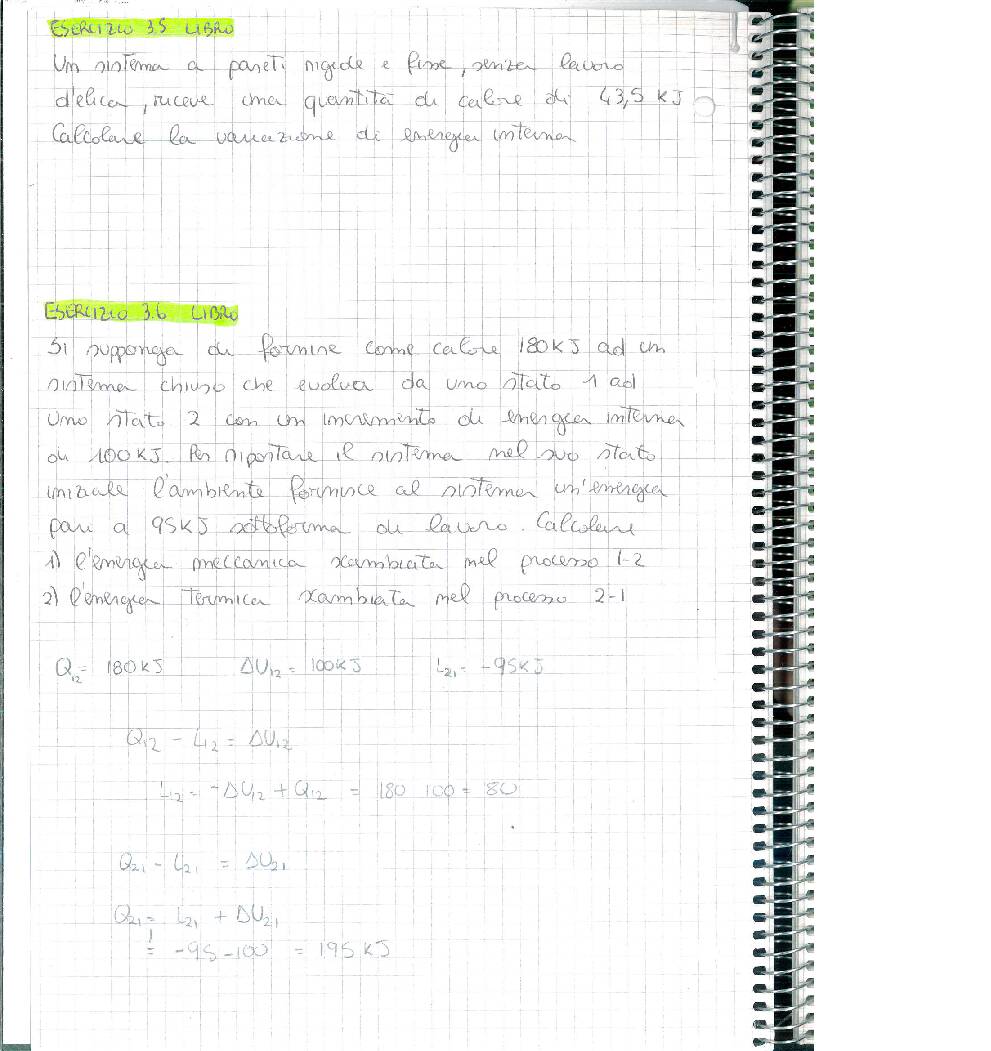 ESERCIZIO 3.5 LIBRO
Un sistema a pareti rigide e fisse, senza lavoro
d'elica, riceve una quantità di calore di 43,5 KJ
Calcolare la variazione di energia interna
ESERCIZIO 3.6 LIBRO
Si supponga di fornire come calore 180KJ ad un
sistema chiuso che evolva da uno stato 1 ad
uno stato 2 con un incremento di energia interna
di 100KJ. Per riportare il sistema nel suo stato
iniziale l'ambiente fornisce al sistema un'energia
pari a 95KJ sottoforma di lavoro. Calcolare
1) l'energia meccanica scambiata nel processo 1-2
2) l'energia termica scambiata nel processo 2-1
Q12 = 180KJ ΔU12 = 100KJ L21 = -95KJ
Q12 - L12 = ΔU12
L12 = -ΔU12 + Q12 = 180 100 = 80
Q21 - L21 = ΔU21
Q21 = L21 + ΔU21
= -95-100 = 195 KJ